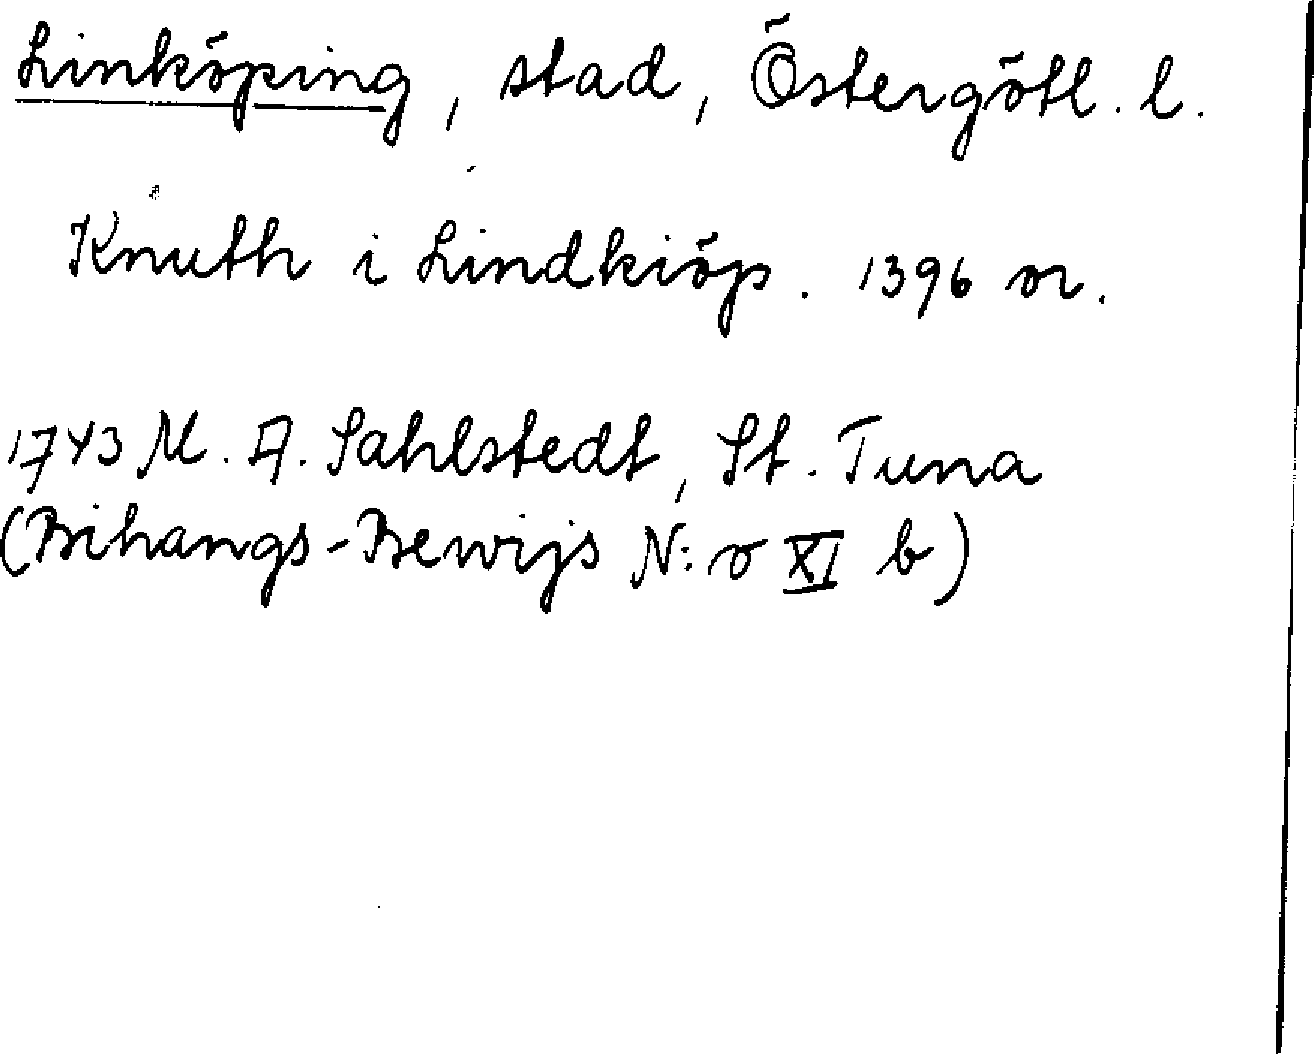 Linköping, stad, Östergötl. l.
Knuth i Lindkiöp. 1396 or.
1743 M. A. Sahlstedt, St. Tuna
(Bihangs-Bewijs N:o XI b)